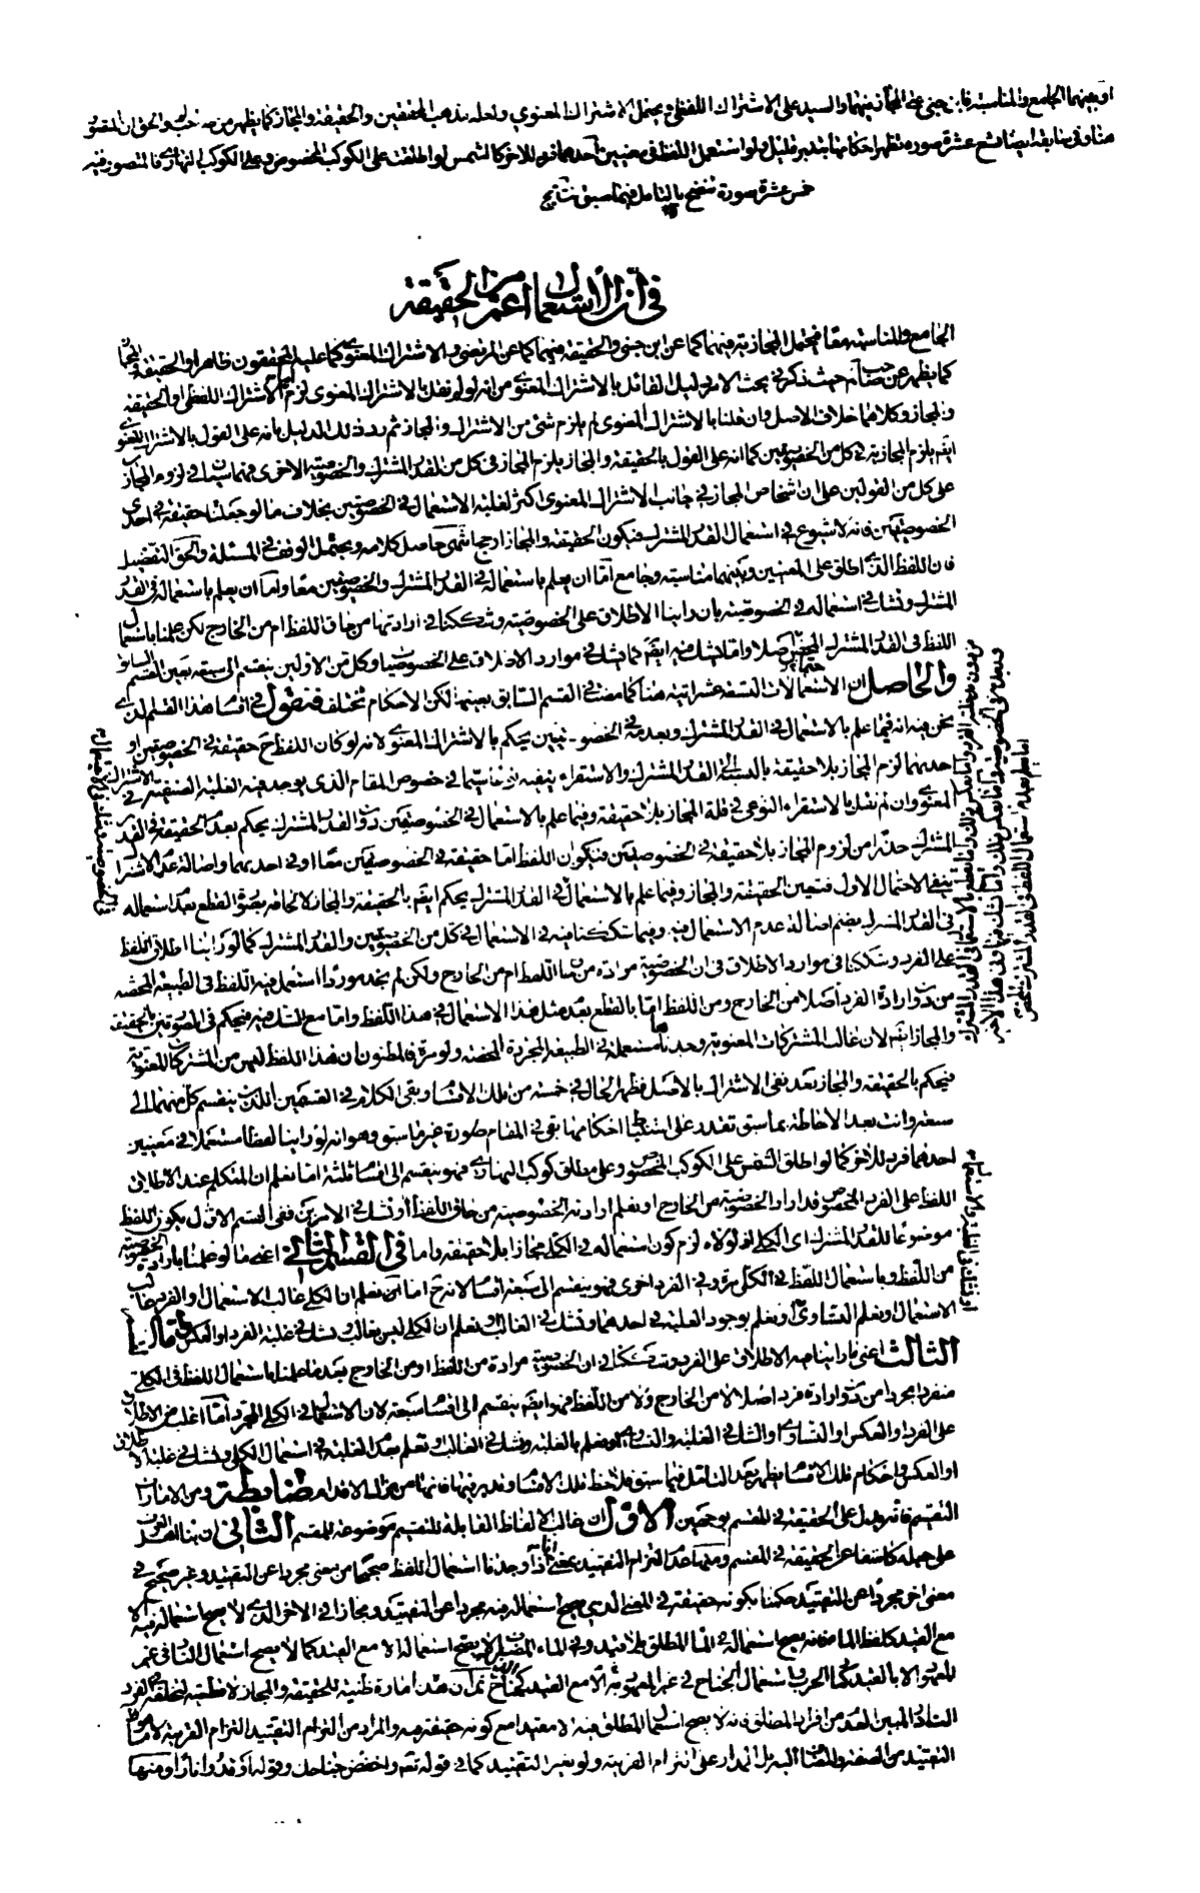 او بينهما الجامع والمناسبة فابن جنى على المجاز فيهما والسيد على الاشتراك اللفظى ويحتمل الاشتراك المعنوي ولعله مذهب المحققين والحقيقة والمجاز كما يظهر من والحق ان المتصور
هنا وفى سابقه ايضا تسع عشرة صورة تظهر احكامها بتدبر قليل ولو استعمل اللفظ فى معنيين احدهما فرد للاخر كالشمس لو اطلقت على الكوكب المخصوص وعلى الكوكب النهارى فالمتصور فيه
خمس عشرة صورة تتضح بالتامل فيما سبق نتايج
فى ان الاستعمال اعم من الحقيقة
الجامع والمناسبة معًا فيحتمل المجازية فيهما كما عن ابن جنى والحقيقة فيهما كما عن المرتضى والاشتراك المعنوى كما عليه المحققون ظاهرا والحقيقة والمجاز
كما يظهر عن حيث ذكر فى بحث الامر دليل القائل بالاشتراك المعنوى من انه لو لم نقل بالاشتراك المعنوى لزم اما الاشتراك اللفظى او الحقيقة
والمجاز وكلاهما خلاف الاصل وان قلنا بالاشتراك المعنوى لم يلزم شئ من الاشتراك والمجاز ثم رد ذلك الدليل بانه على القول بالاشتراك المعنوى
ايضا يلزم المجازية فى كل من الخصوصيتين كما انه على القول بالحقيقة والمجاز يلزم المجاز فى كل من القدر المشترك والخصوصية الاخرى فهما فى لزوم المجاز
على كل من القولين على ان اشخاص المجاز فى جانب الاشتراك المعنوى اكثر لغلبة الاستعمال فى الخصوصيتين بخلاف ما لو جعلنا حقيقة فى احدى
الخصوصيتين فانه لا شيوع فى استعمال القدر المشترك فيكون الحقيقة والمجاز ارجح انتهى حاصل كلامه ويحتمل الوقف فى المسئلة والحق التفصيل
فان اللفظ الذى اطلق على المعنيين وبينهما مناسبة وجامع اما ان يعلم باستعماله فى القدر المشترك والخصوصيتين معًا واما ان يعلم باستعماله فى القدر
المشترك ونشك فى استعماله فى الخصوصية بان راينا الاطلاق على الخصوصية وشككنا فى ارادتها من حاق اللفظ ام من الخارج لكن علمنا باستعمال
اللفظ فى القدر المشترك اصلا واما نشك فيه ايضا كما نشك فى موارد الاطلاق على الخصوصيات وكل من الاولين ينقسم الى سبعة بعين القسم السابق
والحاصل ان الاستعمالات التسعة عشر اتية هنا كما مضت فى القسم السابق بعينها لكن الاحكام تختلف فنقول فى اقسام هذا القسم الذى
نحن فيه انه فيما علم بالاستعمال فى القدر المشترك وبعدمه فى الخصوصيتين يحكم بالاشتراك المعنوى لانه لو كان اللفظ ح حقيقة فى الخصوصيتين او
احديهما لزم المجاز بلا حقيقة بالنسبة الى القدر المشترك والاستقراء ينفيه سيما فى خصوص المقام الذى يوجد فيه الغلبة الصنفية فى
المعنوى وان لم نقل بالاستقراء النوعى فى قلة المجاز بلا حقيقة وفيما علم بالاستعمال فى الخصوصيتين دون القدر المشترك يحكم بعدم الحقيقة فى القدر
المشترك حذرًا من لزوم المجاز بلا حقيقة فى الخصوصيتين فيكون اللفظ اما حقيقة فى الخصوصيتين معًا او فى احديهما واصالة عدم الاشتراك
ينفى الاحتمال الاول فتعين الحقيقة والمجاز وفيما علم بالاستعمال فى القدر المشترك يحكم ايضا بالحقيقة والمجاز لالحاقه بصورة القطع بعدم استعماله
فى القدر المشترك بضم اصالة عدم الاستعمال فيه وفيما شككنا فيه فى الاستعمال فى كل من الخصوصيتين والقدر المشترك كما لو راينا اطلاق اللفظ
على الفرد وشككنا فى موارد الاطلاق فى ان الخصوصية مرادة من اللفظ ام من الخارج ولكن لم نجد موردًا استعمل فيه اللفظ فى الطبيعة المحضة
من دون ارادة الفرد اصلا من الخارج ومن اللفظ اما بالقطع بعدم مثل هذا الاستعمال فى هذا اللفظ واما مع الشك فيه فيحكم فى الصورتين بالحقيقة
والمجاز ايضا لان غالب المشتركات المعنوية وجدناها مستعملة فى الطبيعة المجردة المحضة ولو مرة فالمظنون ان هذا اللفظ ليس من المشتركات المعنوية
فيحكم بالحقيقة والمجاز بعد نفى الاشتراك بالاصل فظهر الحال فى خمسة من تلك الاقسام وبقى الكلام فى القسمين اللذين ينقسم كل منهما الى
سبعة وانت بعد الاحاطة بما سبق تقدر على استنباط احكامها بقى فى المقام صورة غير ما سبق وهو انه لو راينا لفظًا مستعملا فى معنيين
احدهما فرد للاخر كما لو اطلق الشمس على الكوكب المخصوص وعلى مطلق كوكب النهارى فهو ينقسم الى اقسام ثلثة اما نعلم ان المتكلم عند الاطلاق
اللفظ على الفرد المخصوص قد اراد الخصوصية من الخارج او نعلم ارادته الخصوصية من حاق اللفظ او نشك فى الامرين ففى القسم الاول يكون اللفظ
موضوعًا للقدر المشترك اى الكلى اذ لولاه لزم كون استعماله فى الكلى مجازا بلا حقيقة واما فى القسم الثانى اعنى ما لو علمنا بارادة الخصوصية
من اللفظ وباستعمال اللفظ فى الكلى مرة وفى الفرد اخرى فهو ينقسم الى سبعة اقسام لانه ح اما ان نعلم ان الكلى غالب الاستعمال او الفرد غالب
الاستعمال او نعلم التساوى او نعلم بوجود الغلبة فى احدهما ونشك فى الغالب او نعلم ان الكلى ليس بغالب ونشك فى غلبة الفرد او العكس
الثالث اعنى ما راينا فيه الاطلاق على الفرد وشككنا فى ان الخصوصية مرادة من اللفظ او من الخارج بعد ما علمنا باستعمال اللفظ فى الكلى
منفردا مجردا من دون ارادة فرد اصلا لا من الخارج ولا من اللفظ فهو ايضا ينقسم الى اقسام سبعة لان الاستعمال فى الكلى المجرد اما اغلب من الاطلاق
على الفرد او العكس او التساوى او الشك فى الغلبة والتساوى او نعلم بالغلبة ونشك فى الغالب او نعلم بعدم الغلبة فى استعمال الكلى ونشك فى غلبة الاطلاق
او العكس واحكام تلك الاقسام يظهر بعد التامل فيما سبق فلاحظ تلك الاقسام وتدبر فيها فانها من مزال الاقدام ضابطة ومن الامارات
التقسيم فانه يدل على الحقيقة فى المقسم بوجهين الاول ان غالب الالفاظ القابلة للتقسيم موضوعة للمقسم الثانى ان بناء العرف
على جعله كاشفا عن الحقيقة فى المقسم ومنها عدم التزام التقييد بمعنى انا اذا وجدنا استعمال اللفظ صحيحًا من معنى مجردا عن التقييد وغير صحيح فى
معنى اخر مجردًا عن التقييد حكمنا بكونه حقيقة فى المعنى الذى يصح استعماله فيه مجردا عن التقييد ومجازا فى الاخر الذى لا يصح استعماله فيه الا
مع القيد كلفظ الماء فانه يصح استعماله فى الماء المطلق بلا قيد وفى الماء المضاف لا يصح استعماله الا مع القيد كما لا يصح استعمال النار فى غير
المعهود الا بالقيد كنار الحرب واستعمال الجناح فى غير المعهود الا مع القيد كجناح الذل ثم ان هذه امارة ظنية للحقيقة والمجاز لا قطعية لتخلفه فى الفرد
النادر المبين العدم من افراد المطلق فانه لا يصح استعمال المطلق فيه الا مقيدا مع كونه حقيقة فيه والمراد من التزام التقييد التزام القرينة لا خصوص
التقييد من الصفة والمضاف اليه بل المدار على التزام القرينة ولو بغير التقييد كما فى قوله تعالى واخفض جناحك وقوله اوقدوا نارًا ومنها